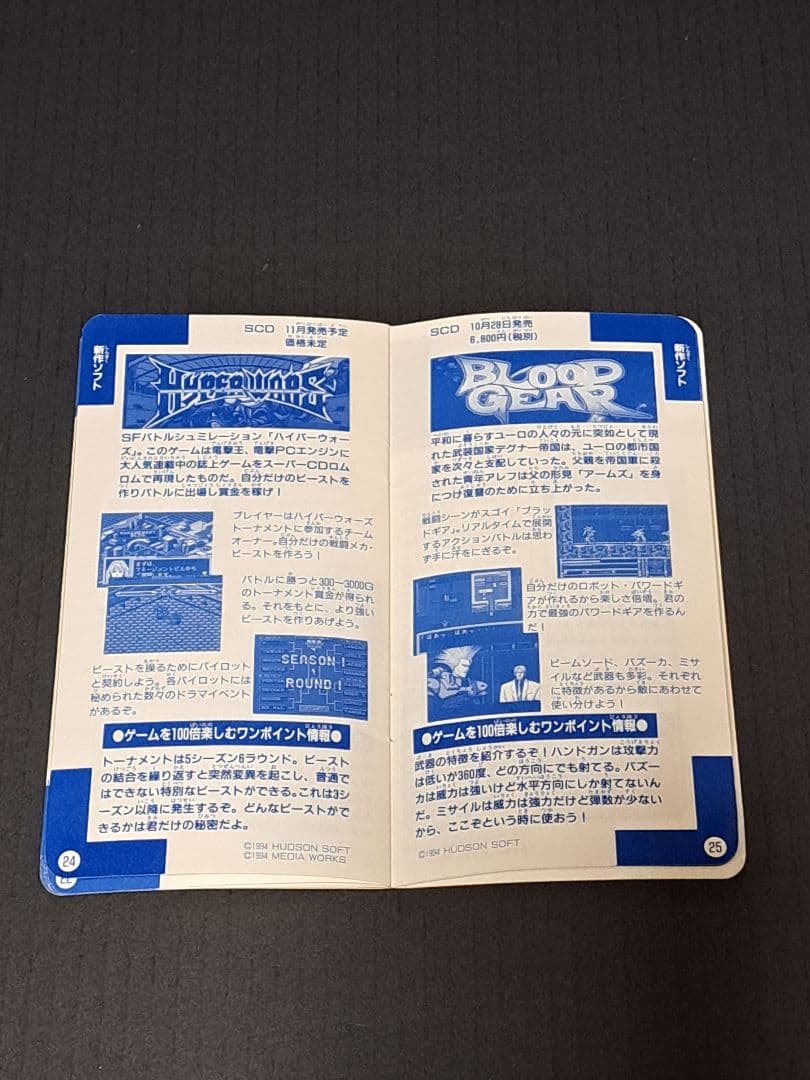 新作ソフト
SCD 11月発売予定
価格未定
HYPER WARS
SFバトルシュミレーション「ハイパーウォー
ズ」。このゲームは電撃王、電撃PCエンジンに
大人気連載中の誌上ゲームをスーパーCDロム
ロムで再現したものだ。自分だけのビーストを
作りバトルに出場し賞金を稼げ！
プレイヤーはハイパーウォーズ
トーナメントに参加するチーム
オーナー。自分だけの戦闘メカ・
ビーストを作ろう！
バトルに勝つと300〜3000G
のトーナメント賞金が得られ
る。それをもとに、より強い
ビーストを作りあげよう。
SEASON 1
ROUND 1
ビーストを操るためにパイロット
と契約しよう。各パイロットには
秘められた数々のドラマイベント
があるぞ。
●ゲームを100倍楽しむワンポイント情報●
トーナメントは5シーズン6ラウンド。ビースト
の結合を繰り返すと突然変異を起こし、普通で
はできない特別なビーストができる。これは3シ
ーズン以降に発生するぞ。どんなビーストがで
きるかは君だけの秘密だよ。
©1994 HUDSON SOFT
©1994 MEDIA WORKS
24
新作ソフト
SCD 10月28日発売
6,800円(税別)
BLOOD GEAR
平和に暮らすユーロの人々の元に突如として現
れた武装国家デグナー帝国は、ユーロの都市国
家を次々と支配していった。父親を帝国軍に殺
された青年アレフは父の形見「アームズ」を身
につけ復讐のために立ち上がった。
戦闘シーンがスゴイ「ブラッ
ドギア」。リアルタイムで展開
するアクションバトルは思わ
ず手に汗をにぎるぞ。
自分だけのロボット・パワードギ
アが作れるから楽しさ倍増。君の
力で最強のパワードギアを作るん
だ！
はあっ はあっ‥
ビームソード、バズーカ、ミサ
イルなど武器も多彩。それぞれ
に特徴があるから敵にあわせて
使い分けよう！
●ゲームを100倍楽しむワンポイント情報●
武器の特徴を紹介するぞ！ハンドガンは攻撃力
は低いが360度、どの方向にでも射てる。バズー
カは威力は強いけど水平方向にしか射てないん
だ。ミサイルは威力は強力だけど弾数が少ない
から、ここぞという時に使おう！
©1994 HUDSON SOFT
25